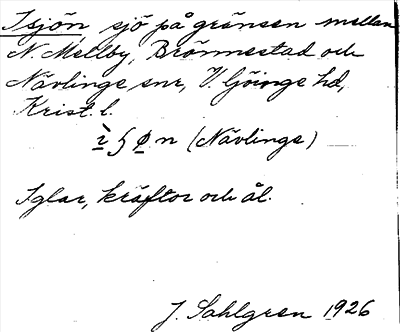 Isjön, sjö på gränsen mellan
N. Mellby, Brönnestad och
Nävlinge snr, V. Göinge hd,
Krist. l.
ı̀ʃø̣n (Nävlinge)
Iglar, kräftor och ål.
J. Sahlgren 1926